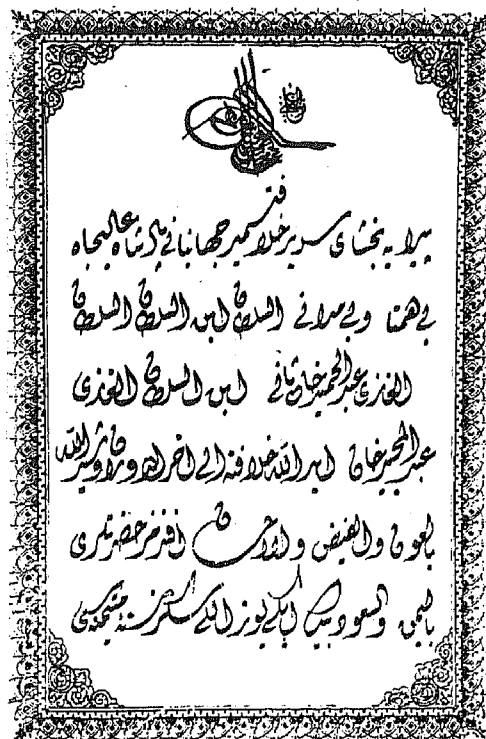 پیرایه بخشای سریر خلافتسمیر جهانبانی پادشاه عالیجاه
بی همتا وبی مدانی السلطان ابن السلطان السلطان
الغازی عبد الحمید خان ثانی ابن السلطان الغازی
عبد المجید خان اید الله خلافته الی اخر الدوران
بالعون والفیض والاحسان افندمز حضرتلری
بالیمن والسعود بیك ایکیوز اللی سکز سنه